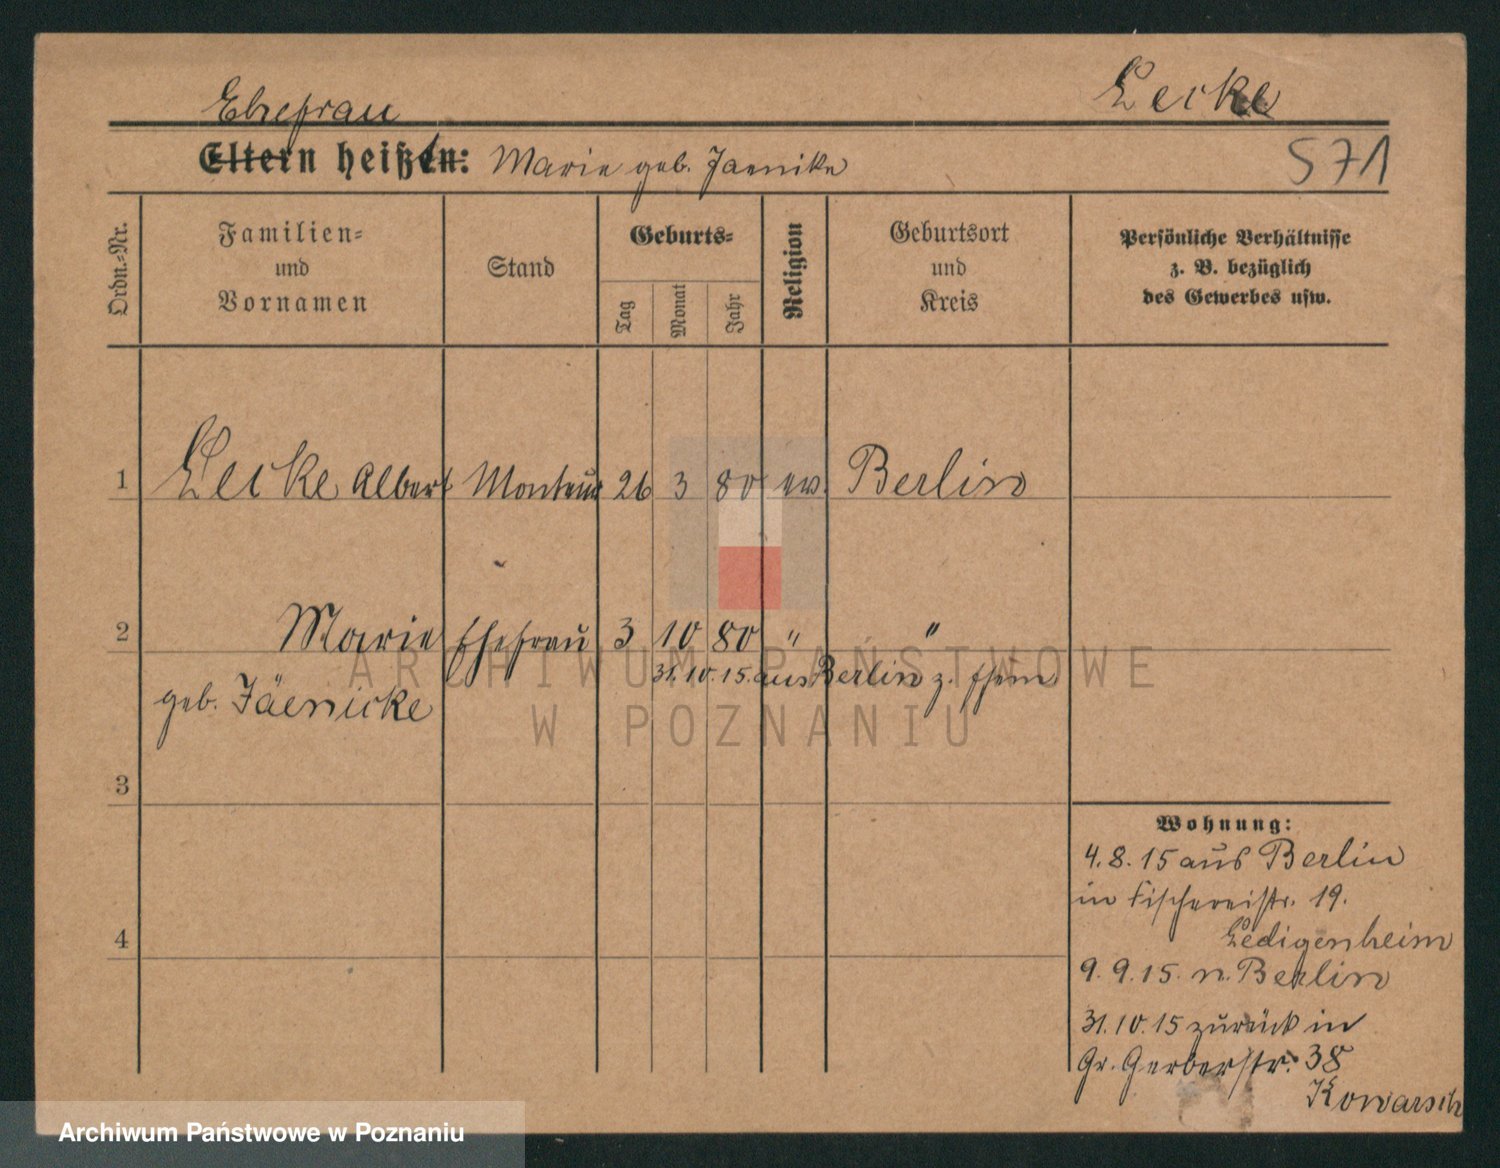 Lecke
Ehefrau
Eltern heißen: Marie geb. Jaenike
571
Ordn.=Nr.
Familien=
und
Vornamen
Stand
Geburts=
Tag
Monat
Jahr
Religion
Geburtsort
und
Kreis
Persönliche Verhältnisse
z. B. bezüglich
des Gewerbes usw.
1 Lecke Albert Monteur 26 3 80 ev. Berlin
2 Marie Ehefrau 3 10 80 " "
31.10.15. aus Berlin z. Ehem
geb. Jäenicke
3
4
Wohnung:
4.8.15 aus Berlin
in Fischereistr. 19.
Ledigenheim
9.9.15. n. Berlin
31.10.15 zurück in
Gr. Gerberstr. 38
Kowarsch
ARCHIWUM PAŃSTWOWE
W POZNANIU
Archiwum Państwowe w Poznaniu